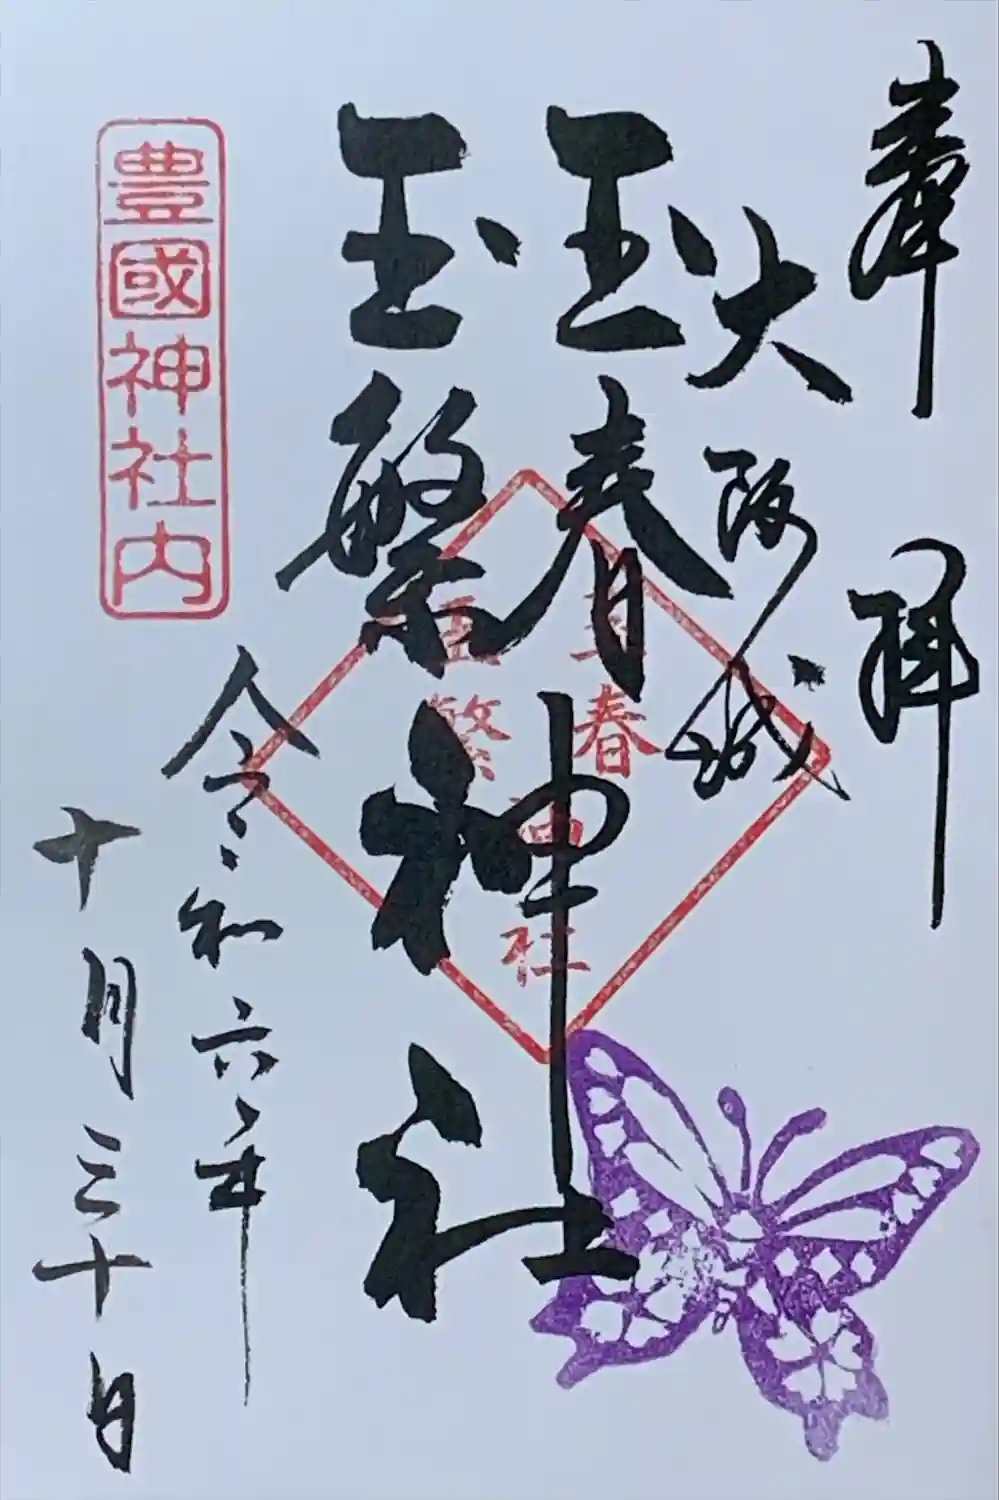 奉拝
大阪城
玉春
玉繁
神社
令和六年
十月三十日
豊國神社内
玉春
玉繁
神社